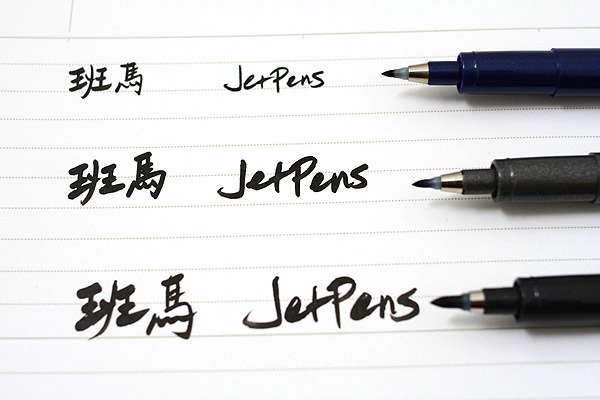 班馬 JetPens
班馬 JetPens
班馬 JetPens